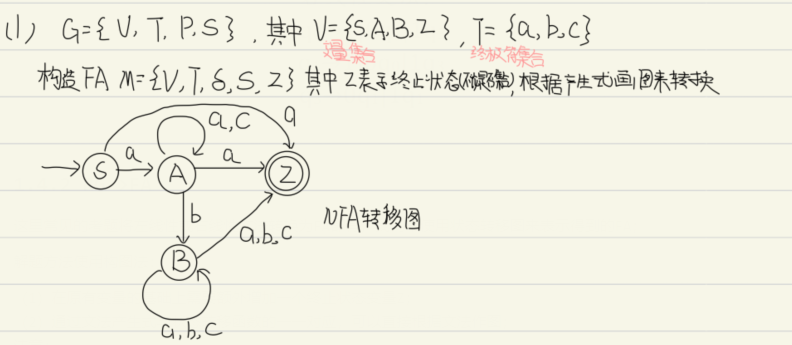 (1) G={V,T,P,S},其中V={S,A,B,Z},T={a,b,c}
变量集合 终极符集合
构造FA M={V,T,δ,S,Z}其中Z表示终止状态 根据产生式画图来转换
a,c
a
S
a
A
a
Z
b
a,b,c
NFA转移图
B
a,b,c